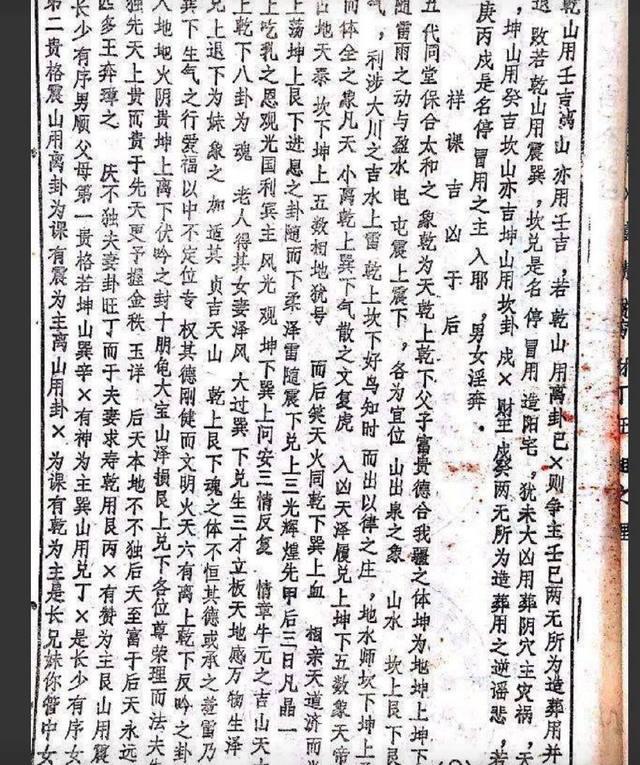 乾山用壬吉离山亦用壬吉，若乾山用离卦已×则争主壬已两无所为造葬用并
退败若乾山用震巽，坎兑是名停冒用造阳宅，犹未大凶用葬阴穴主灾祸，天
，坤山用癸吉坎山亦吉坤山用坎卦戍×财王戍癸两无所为造葬用之逆谣悲，若
庚丙戍是名停冒用之主入耶，男女淫奔。
祥课吉凶于后
五代同堂保合太和之象乾为天乾上乾下父子富贵德合我疆之体坤为地坤上坤下
随雷雨之动与盈水电屯震上震下，各为宜位山出泉之象山水坎上艮下艮
气，利涉大川之吉水上雷乾上坎下好鸟知时而出以律之庄，地水师坎下坤上
而体全之象凡天小离乾上巽下气散之文复虎入凶天泽履兑上坤下五数象天帝
四地天泰坎下坤上五数相地犹号而后笑天火同乾下巽上血相亲天道济而光
上荡坤上艮下进息之卦随而下柔泽雷随震下兑上三光辉煌先甲后三日凡晶一
上吃乳之恩观光国利宾主风光观坤下巽上问安三情反复情章牛元之吉山天大
上乾下八卦为魂老人得其女妻泽风大过巽下兑生三才立板天地感万物生泽
兑上退下为妹象之加道其贞吉天山乾上艮下魂之体不恒其德或承之意雷乃
巽下生气之行爱福以中不定位专权其德刚健而文明火天六有离上乾下反吟之卦
人地地火阴贵坤上离下伏吟之封十朋龟大宝山泽损艮上兑下各位尊荣理而法夫生
独先天上贵而贵于先天更予握金秩玉详后天本地不不独后天至富于后天永远
匹多王弃璋之庆不独夫妻卦旺丁而于夫妻求寿乾用艮丙×有赞为主艮山用震
长少有序男顺父母第一贵格若坤山巽辛×有神为主巽山用兑丁×是长少有序女
第二贵格震山用离卦为课有震为主离山用卦×为课有乾为主是长兄妹你管中女